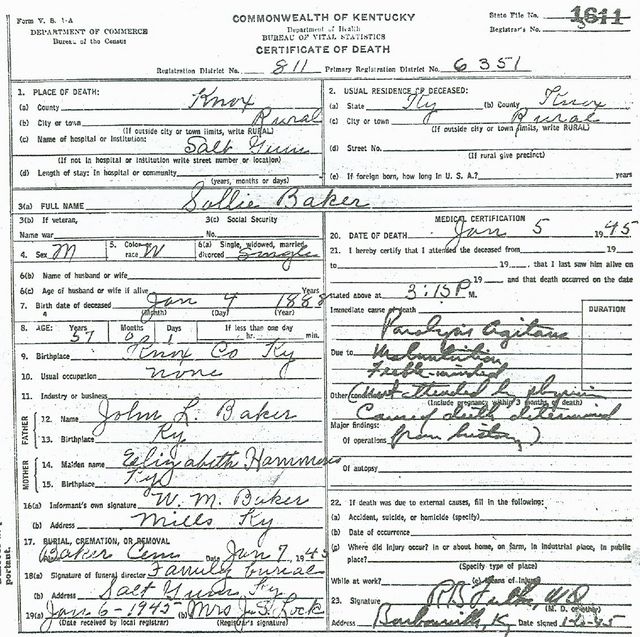 Form V. S. 1-A
DEPARTMENT OF COMMERCE
Bureau of the Census
COMMONWEALTH OF KENTUCKY
Department of Health
BUREAU OF VITAL STATISTICS
CERTIFICATE OF DEATH
State File No. 1611
Registrar's No.
Registration District No. 811 Primary Registration District No. 6351
1. PLACE OF DEATH:
(a) County Knox
(b) City or town Rural
(If outside city or town limits, write RURAL)
(c) Name of hospital or institution:
Salt Gum
(If not in hospital or institution write street number or location)
(d) Length of stay: In hospital or community
(years, months or days)
2. USUAL RESIDENCE OF DECEASED:
(a) State Ky (b) County Knox
(c) City or town Rural
(If outside city or town limits, write RURAL)
(d) Street No.
(If rural give precinct)
(e) If foreign born, how long in U. S. A.? years
3(a) FULL NAME Sollie Baker
3(b) If veteran, 3(c) Social Security
Name war No.
4. Sex M 5. Color or race W 6(a) Single, widowed, married, divorced Single
6(b) Name of husband or wife
6(c) Age of husband or wife if alive Years
7. Birth date of deceased Jan 4 1888
(Month) (Day) (Year)
8. AGE: Years Months Days If less than one day
57 0 1 hr. min.
9. Birthplace Knox Co Ky
10. Usual occupation none
11. Industry or business
FATHER
12. Name John L. Baker
13. Birthplace Ky
MOTHER
14. Maiden name Elizabeth Hammons
15. Birthplace Ky
16(a) Informant's own signature W. M. Baker
(b) Address Mills Ky
17. BURIAL, CREMATION, OR REMOVAL
Baker Cem Date Jan 7 1945
18(a) Signature of funeral director Family burial
(b) Address Salt Gum Ky
19(a) Jan 6-1945 (b) Mrs J. S. Lock
(Date received by local registrar) (Registrar's signature)
MEDICAL CERTIFICATION
20. DATE OF DEATH Jan 5 1945
21. I hereby certify that I attended the deceased from 19
to 19, that I last saw him alive on
19 and that death occurred on the date
stated above at 3:15 P. M.
Immediate cause of death DURATION
Paralysis agitans
Due to Malnutrition
Feeble-minded
Other conditions (Not attended by physician
(Include pregnancy within 3 months of death)
Cause of death determined
Major findings:
Of operations from history)
Of autopsy
22. If death was due to external causes, fill in the following:
(a) Accident, suicide, or homicide (specify)
(b) Date of occurrence
(c) Where did injury occur? in or about home, on farm, in industrial place, in public
place?
(Specify type of place)
While at work? (e) Means of injury
23. Signature RB M.D.
(M. D. or other)
Address Barbourville, Ky Date signed
portant.